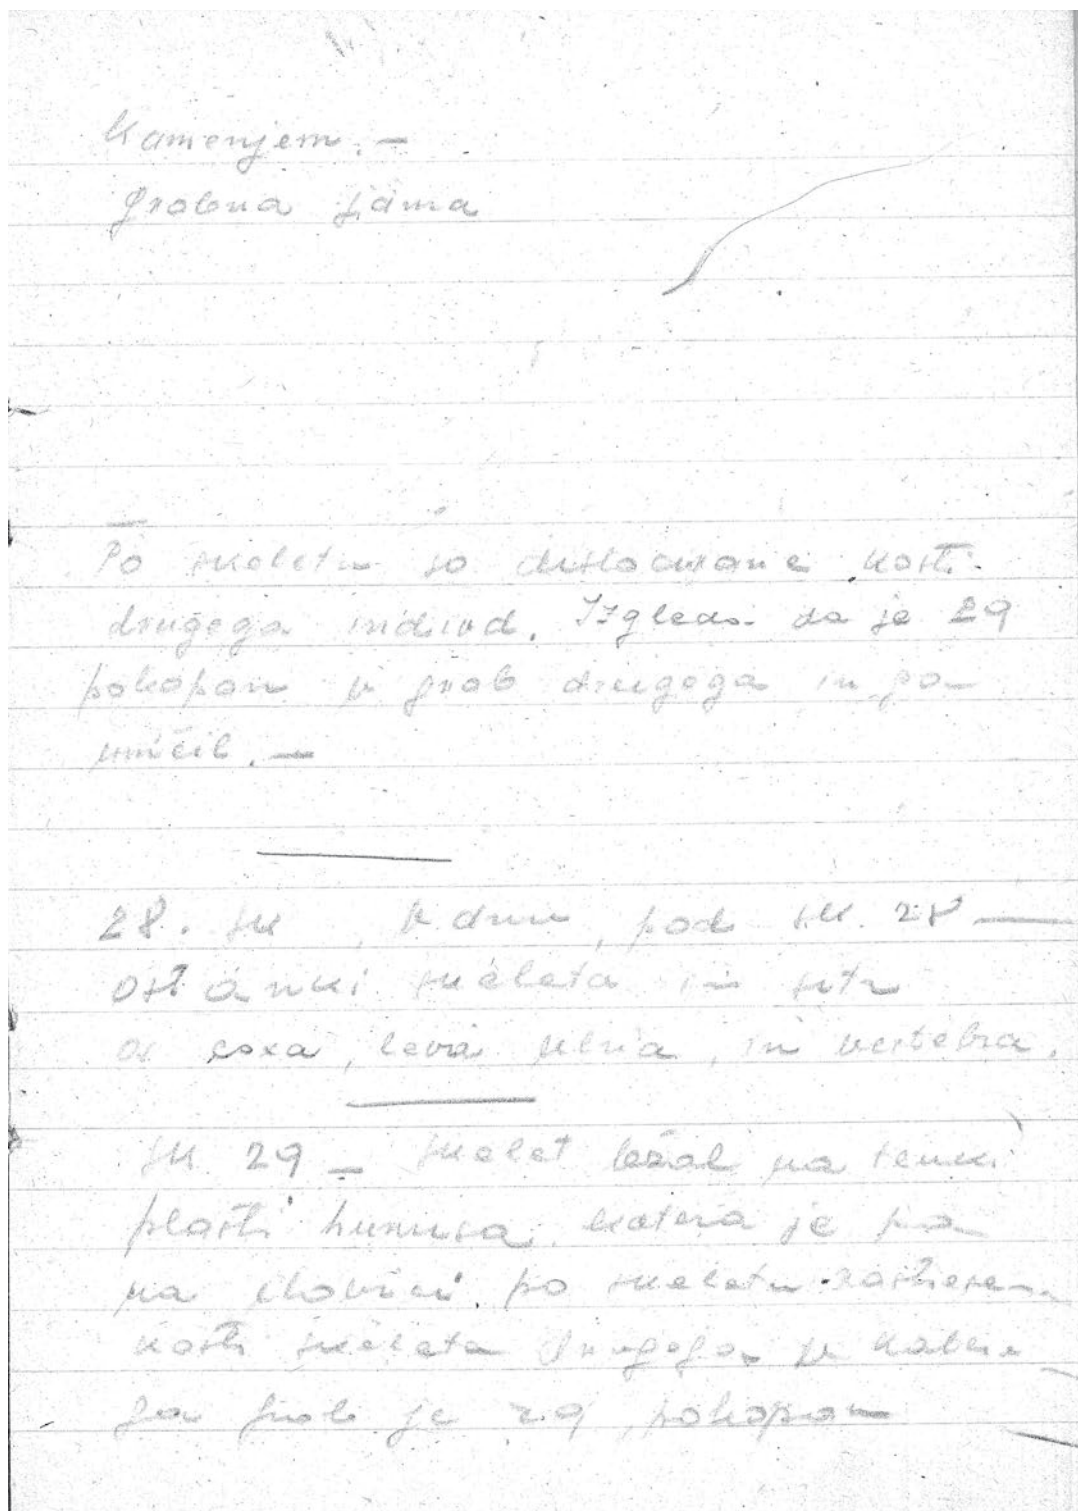 Kamenjem. –
grobna jama
Po skeletu so dislocirane kosti
drugega individ. Izgleda da je 29
pokopan v grob drugega in ga
uničil. –
28. sk , v dnu, pod sk. 28 —
ostanki skeleta in situ
os coxa, leva ulna, in vertebra.
sk 29 – skelet ležal na tenki
plasti humusa, katera je pa
na zdovici. po skeletu raztresene
kosti skeleta drugega v kater
ga grob je 29 pokopan